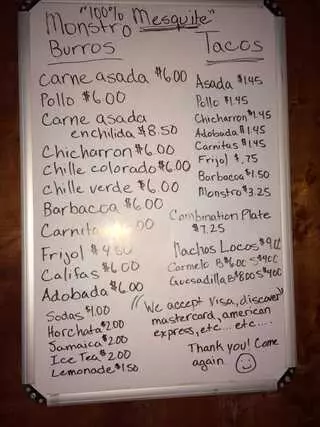 "100% Mesquite"
Monstro
Burros
Carne asada $6.00
Pollo $6.00
Carne asada
enchilida $8.50
Chicharron $6.00
Chille colorado $6.00
Chille verde $6.00
Barbacoa $6.00
Frijol $4.50
Califas $6.00
Adobada $6.00
Sodas $1.00
Horchata $2.00
Jamaica $2.00
Ice Tea $2.00
Lemonade $1.50
Tacos
Asada $1.45
Pollo $1.45
Chicharron $1.45
Adobada $1.45
Carnitas $1.45
Frijol $.75
Barbacoa $1.50
Monstro $3.25
Combination Plate
$7.25
Nachos Locos
Carmelo B$6.00 S$4.00
Quesadilla B$8.00 S$4.00
"We accept Visa, discover"
mastercard, american
express, etc... etc....
Thank you! Come
again